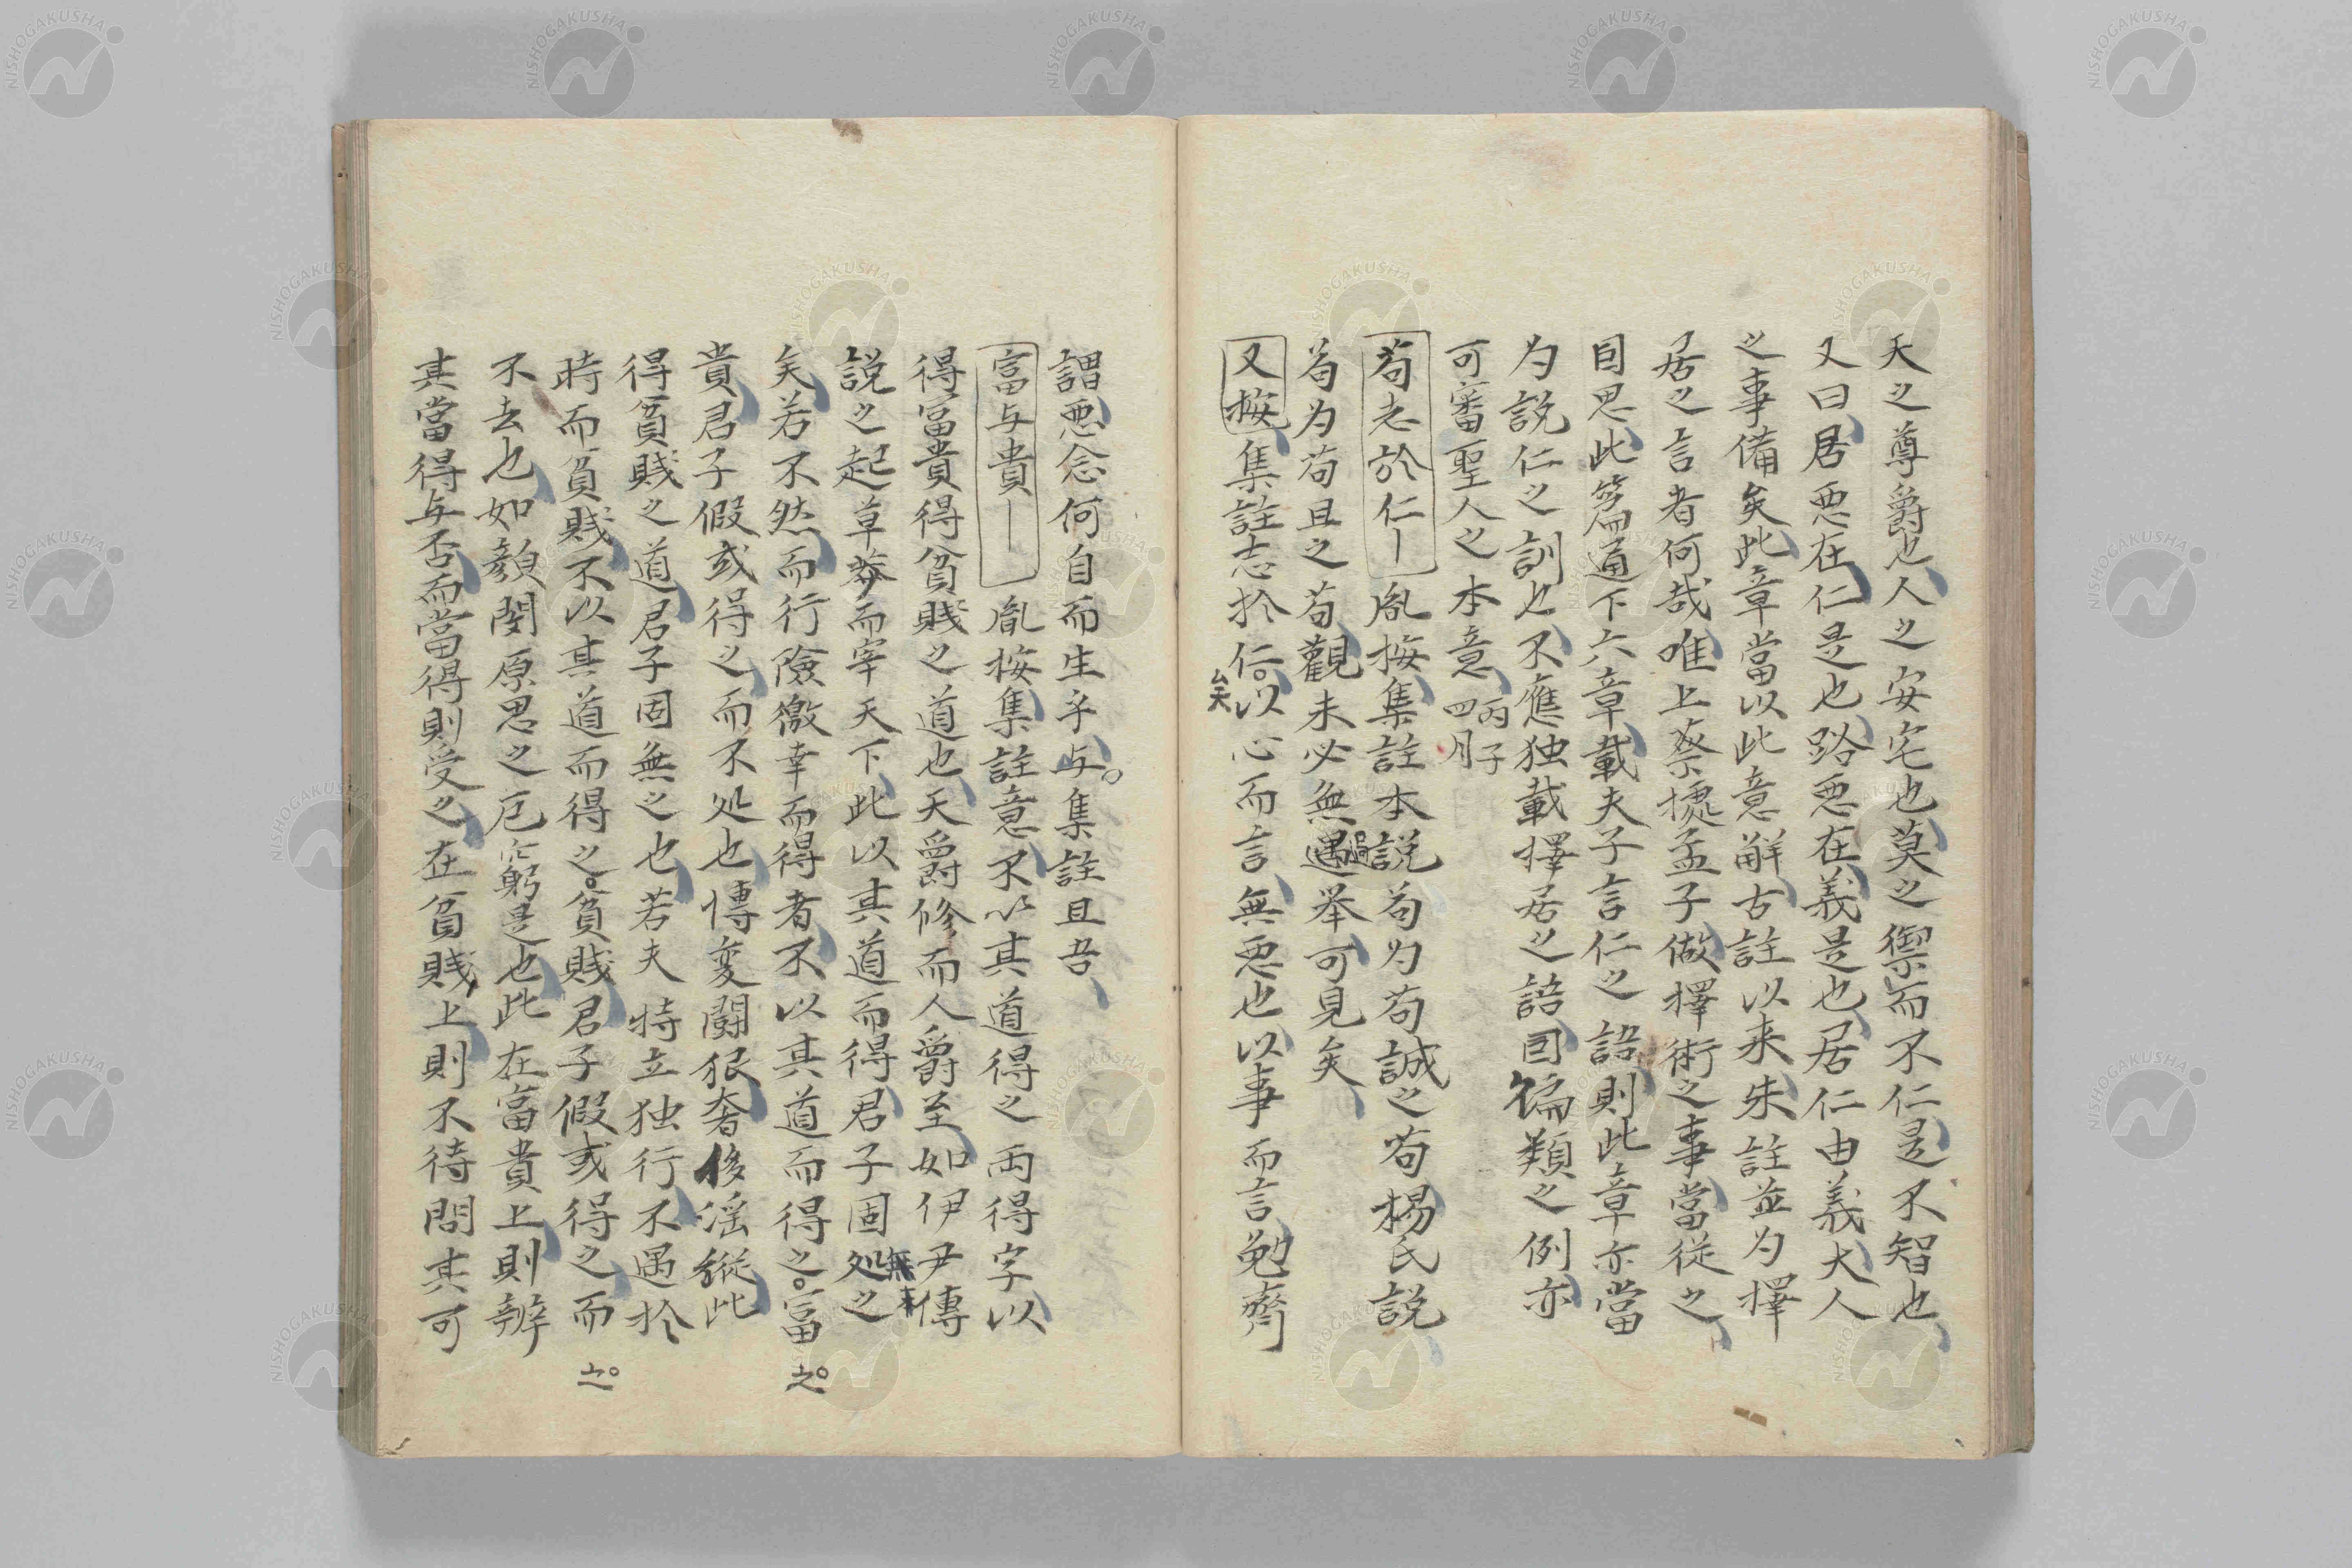 天之尊爵也人之安宅也莫之禦而不仁是不智也
又曰居悪在仁是也路悪在義是也居仁由義大人
之事備矣此章當以此意解古註以来朱註並为擇
居之言者何哉唯上蔡據孟子做擇術之事當從之
因思此篇通下六章載夫子言仁之語則此章亦當
为説仁之訓也不應独載擇居之語因編類之例亦
可審聖人之本意 丙子四月
苟志於仁｜胤按集註本説苟为苟誠之苟楊氏説
苟为苟且之苟觀未必無過举可見矣
又按集註志於仁矣以心而言無悪也以事而言勉齊
謂悪念何自而生乎与集註且吾
富与貴｜胤按集註意不以其道得之両得字以
得富貴得貧賤之道也天爵修而人爵至如伊尹傳
説之起草莽而宰天下此以其道而得君子固無処之
矣若不然而行險徼幸而得者不以其道而得之富
貴君子假或得之而不処也慱変闘狠奢侈淫縦此
得貧賤之道君子固無之也若夫特立独行不遇於
時而貧賤不以其道而得之貧賤君子假或得之而
不去也如顔閔原思之厄窮是也此在富貴上則辨
其當得与否而當得則受之在貧賤上則不待問其可
之
之
NISHOGAKUSHA